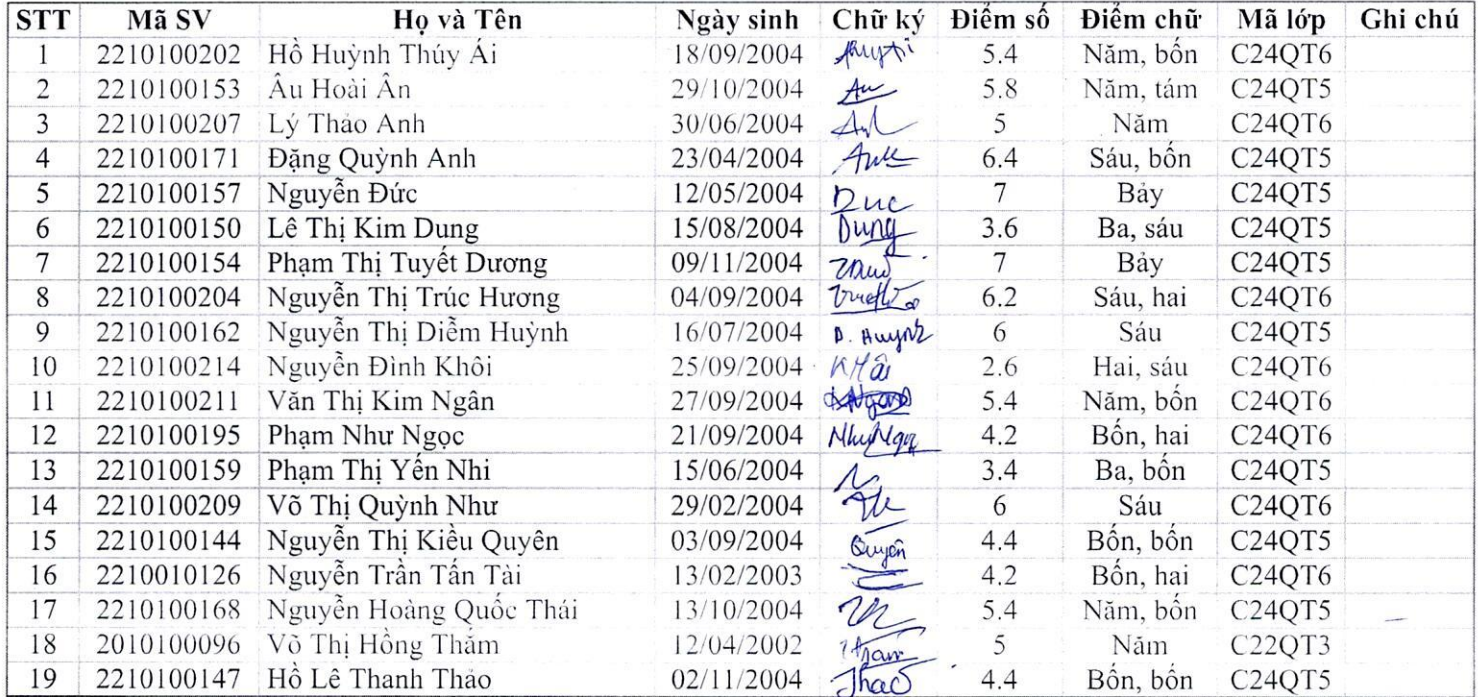 STT Mã SV Họ và Tên Ngày sinh Chữ ký Điểm số Điểm chữ Mã lớp Ghi chú
1 2210100202 Hồ Huỳnh Thúy Ái 18/09/2004 5.4 Năm, bốn C24QT6
2 2210100153 Âu Hoài Ân 29/10/2004 5.8 Năm, tám C24QT5
3 2210100207 Lý Thảo Anh 30/06/2004 5 Năm C24QT6
4 2210100171 Đặng Quỳnh Anh 23/04/2004 6.4 Sáu, bốn C24QT5
5 2210100157 Nguyễn Đức 12/05/2004 Duc 7 Bảy C24QT5
6 2210100150 Lê Thị Kim Dung 15/08/2004 Dung 3.6 Ba, sáu C24QT5
7 2210100154 Phạm Thị Tuyết Dương 09/11/2004 7 Bảy C24QT5
8 2210100204 Nguyễn Thị Trúc Hương 04/09/2004 6.2 Sáu, hai C24QT6
9 2210100162 Nguyễn Thị Diễm Huỳnh 16/07/2004 D. Huynh 6 Sáu C24QT5
10 2210100214 Nguyễn Đình Khôi 25/09/2004 2.6 Hai, sáu C24QT6
11 2210100211 Văn Thị Kim Ngân 27/09/2004 5.4 Năm, bốn C24QT6
12 2210100195 Phạm Như Ngọc 21/09/2004 4.2 Bốn, hai C24QT6
13 2210100159 Phạm Thị Yến Nhi 15/06/2004 3.4 Ba, bốn C24QT5
14 2210100209 Võ Thị Quỳnh Như 29/02/2004 6 Sáu C24QT6
15 2210100144 Nguyễn Thị Kiều Quyên 03/09/2004 Quyên 4.4 Bốn, bốn C24QT5
16 2210010126 Nguyễn Trần Tấn Tài 13/02/2003 4.2 Bốn, hai C24QT6
17 2210100168 Nguyễn Hoàng Quốc Thái 13/10/2004 5.4 Năm, bốn C24QT5
18 2010100096 Võ Thị Hồng Thắm 12/04/2002 5 Năm C22QT3
19 2210100147 Hồ Lê Thanh Thảo 02/11/2004 Thao 4.4 Bốn, bốn C24QT5